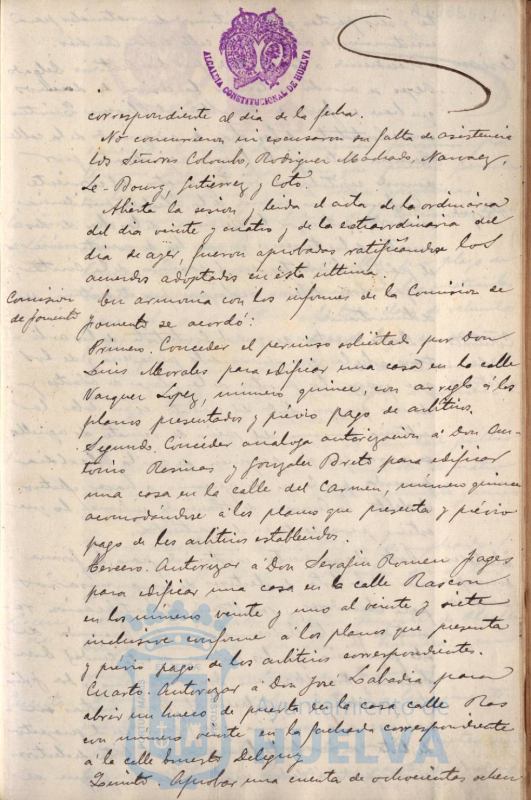 ALCALDIA CONSTITUCIONAL DE HUELVA
correspondiente al dia de la fecha.
No concurrieron ni excusaron su falta de asistencia
los Señores Colombo, Rodriguez Machado, Narvaez,
Le-Bourg, Gutierrez y Coto.
Abierta la sesion y leida el acta de la ordinaria
del dia veinte y cuatro y de la extraordinaria del
dia de ayer, fueron aprobadas ratificandose los
acuerdos adoptados en ésta última.
Comision
de fomento
En armonia con los informes de la Comision de
fomento se acordó:
Primero. Conceder el permiso solicitado por Don
Luis Morales para edificar una casa en la calle
Vazquez Lopez, número quince, con arreglo á los
planos presentados y prévio pago de arbitrios.
Segundo. Conceder análoga autorizacion á Don An-
tonio y Gonzalez para edificar
una casa en la calle del Carmen, número quince
acomodándose á los planos que presenta y prévio
pago de los arbitrios establecidos.
Tercero. Autorizar á Don Serafin Romeu Pages
para edificar una casa en la calle Rascon
en los números veinte y uno al veinte y siete
inclusive conforme á los planos que presenta
y prévio pago de los arbitrios correspondientes.
Cuarto. Autorizar á Don José Labadia para
abrir un hueco de puerta en la casa calle Ras
con número veinte en la fachada correspondiente
á la calle Deligny
Quinto. Aprobar una cuenta de ochocientas ochen
Ayuntamiento de
HUELVA